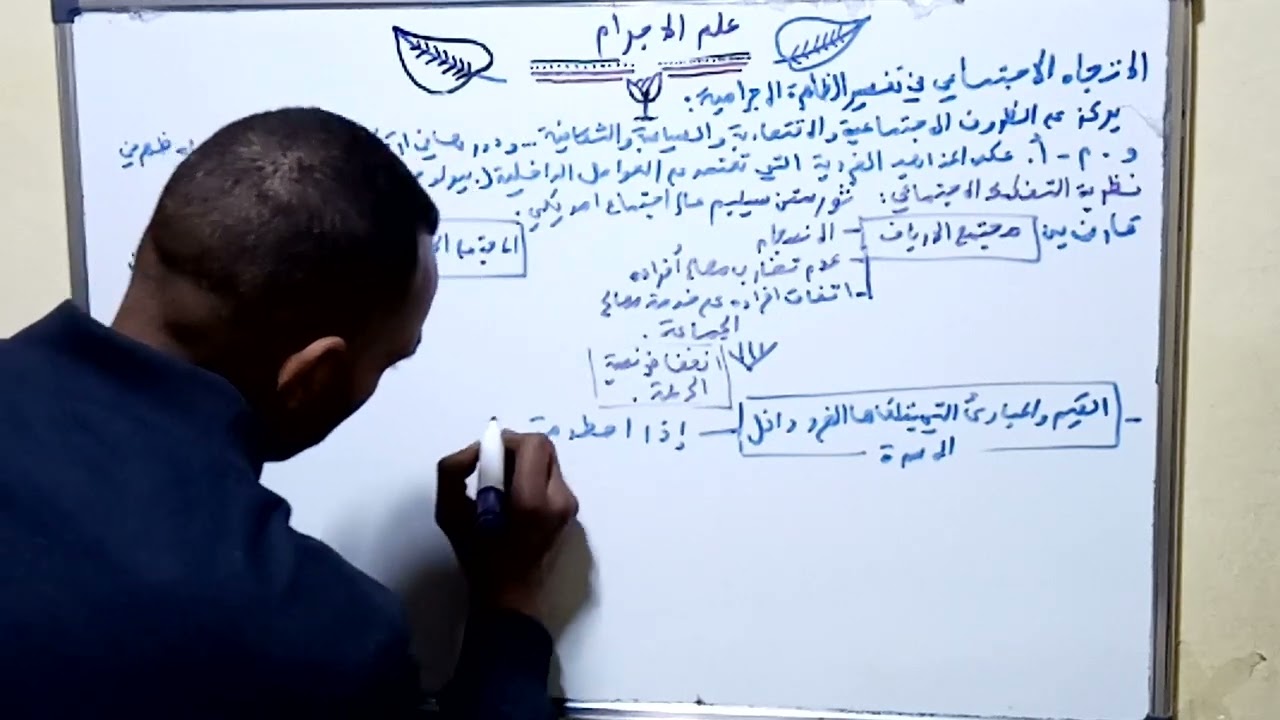 علم الاجرام
الاتجاه الاجتماعي في تفسير الظاهرة الاجرامية:
يركز على الظروف الاجتماعية والاقتصادية والسياسية والثقافية...ودورها في
و.م-أ. عكس المدارس الفردية التي تعتمد على العوامل الداخلية
نظرية التفكك الاجتماعي: ثورستن سيلين عالم اجتماع امريكي.
تقارن بين مجتمع الارياف - الانسجام
- عدم تضارب مصالح أفراده
- اتفاق افراده على خدمة مصالح
الجماعة.
انخفاض نسبة
الجريمة.
- القيم والمبادئ التي يتلقاها الفرد داخل
الاسرة
إذا اصطدمت